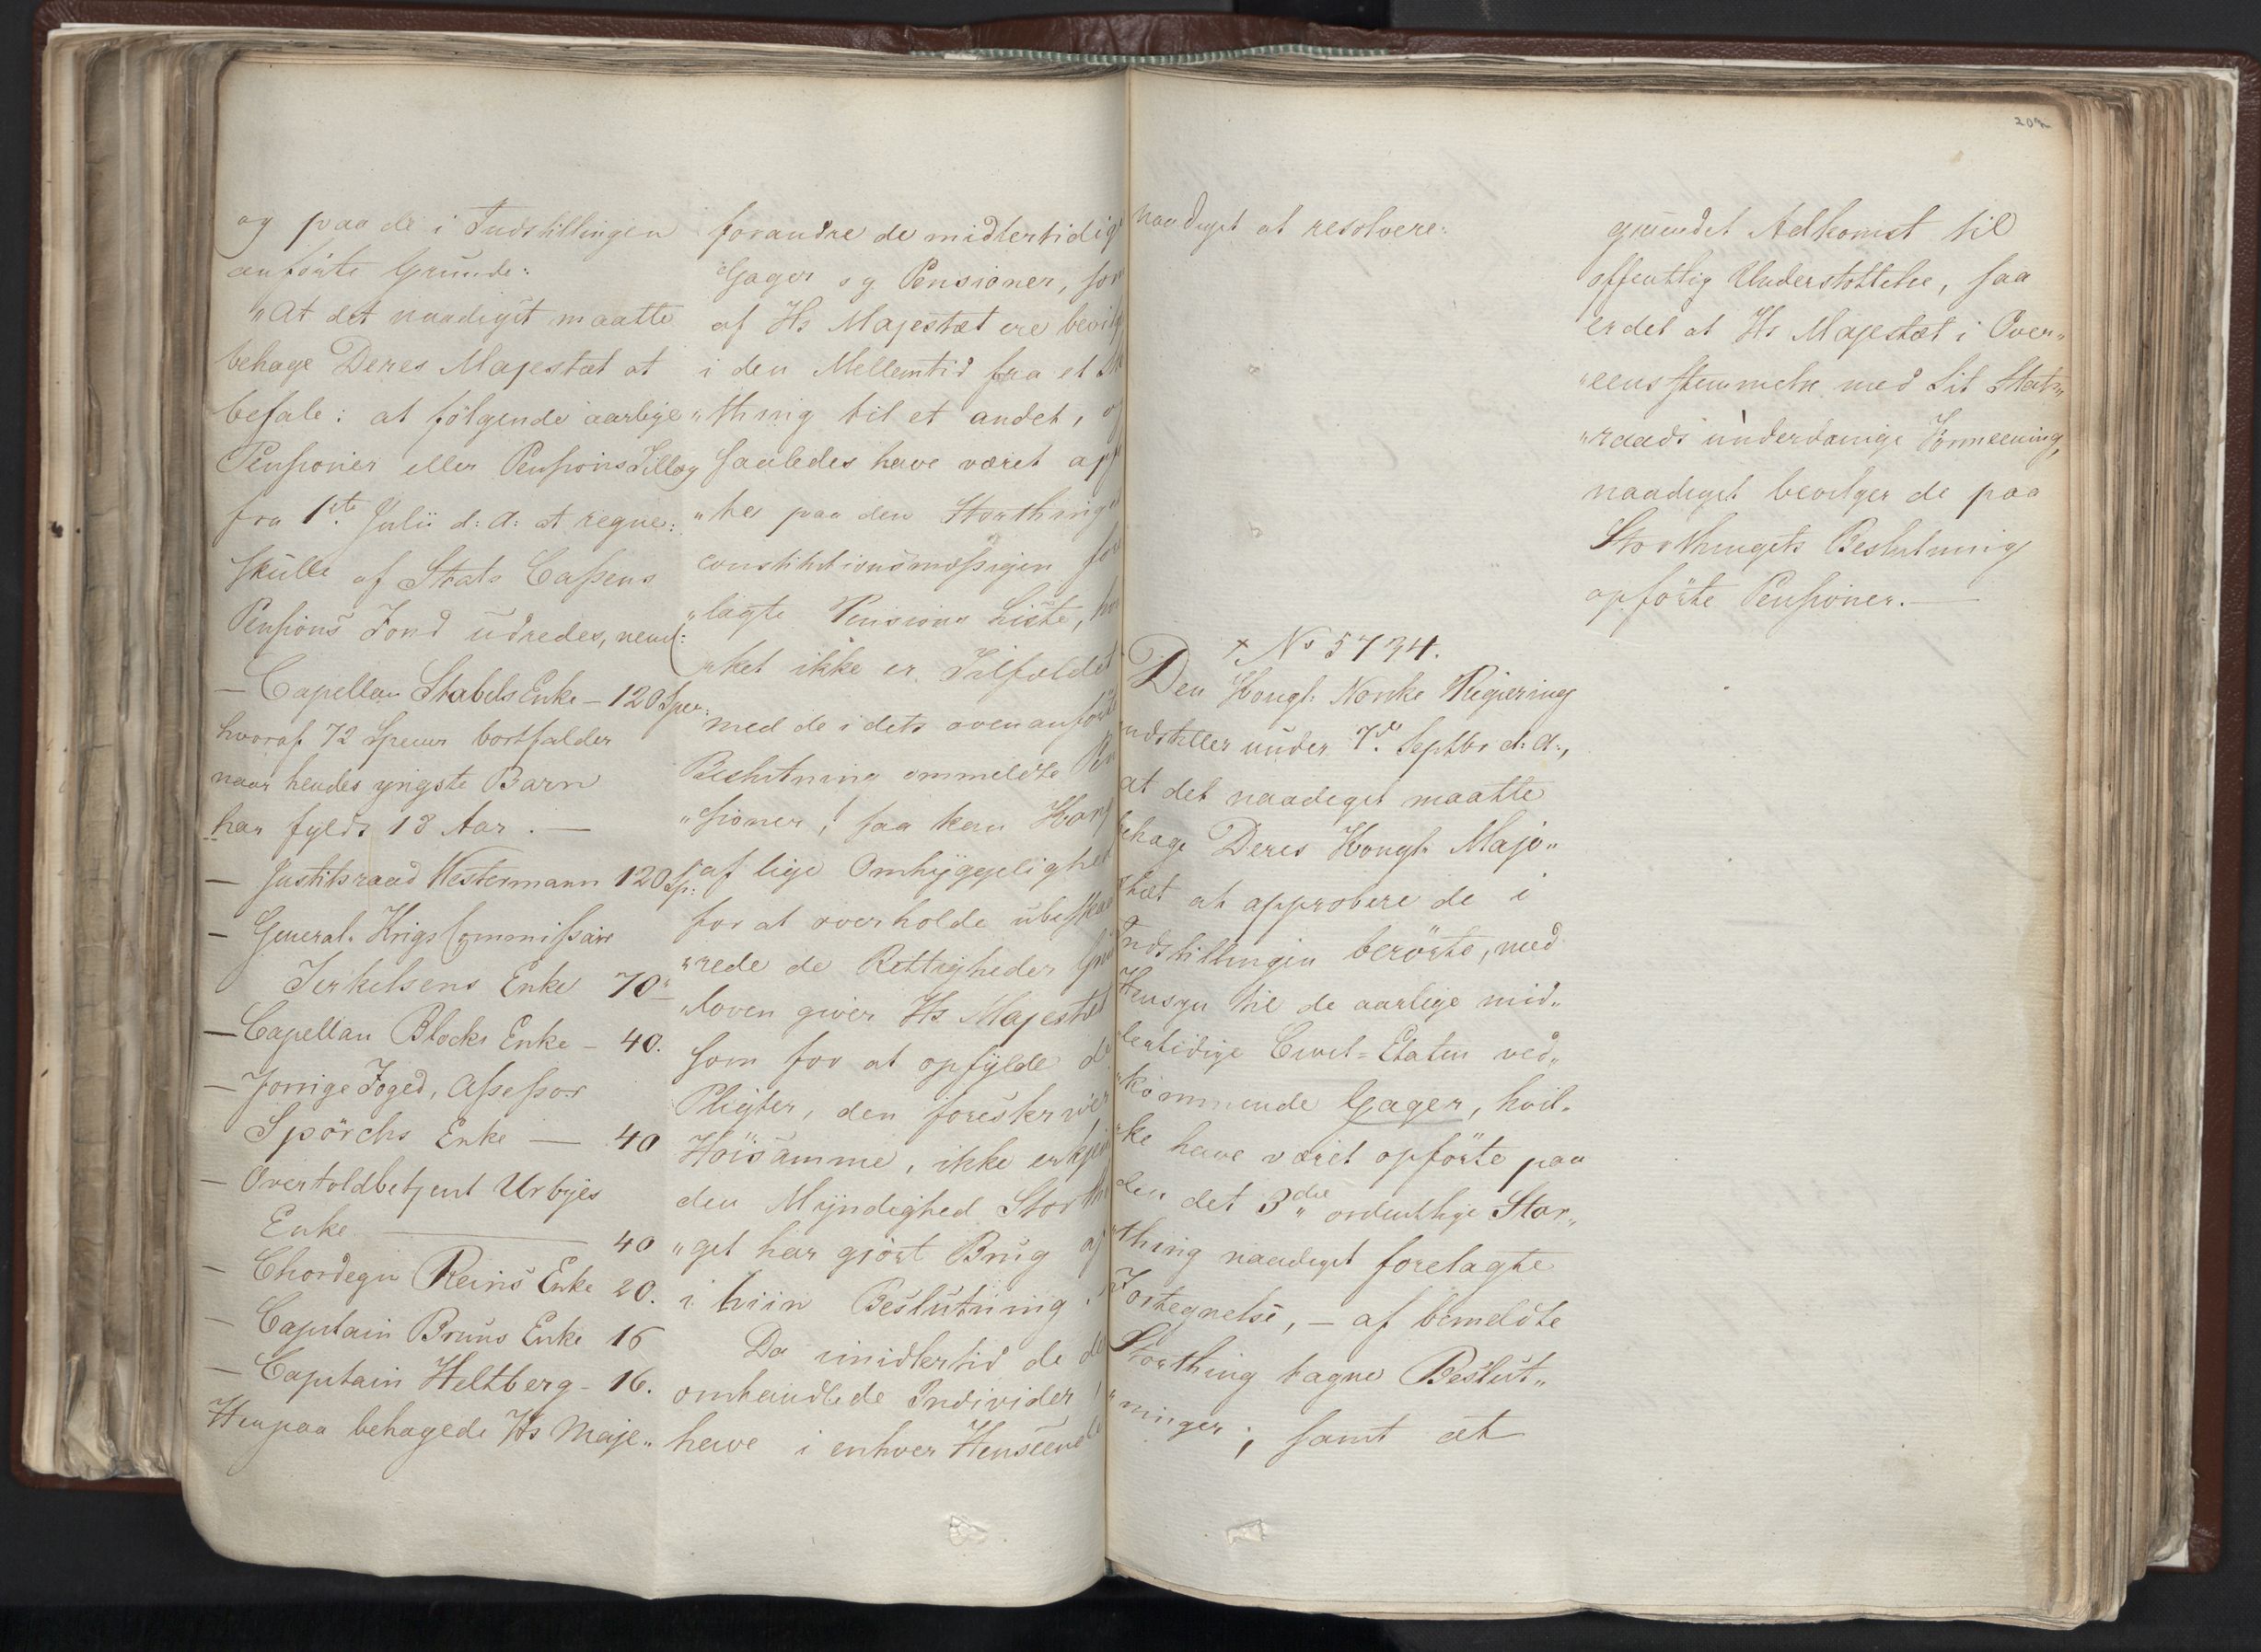 og paa de i Indstillingen
anförte Grunde:
"At det naadigst maatte
behage Deres Majestæt at
befale: at fölgende aarlige
Pensioner eller Pensions Tillæg
fra 1ste Julii d: A: at regne:
skulle af Stats Cassens
Pensions Fond udredes, neml:
— Capellan Stabels Enke — 120 Spec:
hvoraf 72 Specier bortfalder
naar hendes yngste Barn
har fyldt 18 Aar. —
— Justitsraad Westermann 120 Sp:
— General-Krigs Commissair
Terkelsens Enke 70 "
— Capellan Blocks Enke — 40.
— Forrige Foged, Assessor
Spörchs Enke — 40
— Overtoldbetjent Urbyes
Enke — 40
— Chordegn Reins Enke 20.
— Capitain Bruns Enke 16
— Capitain Heltberg — 16.
Herpaa behagede Hs Maje„
forandre de midlertidig
Gager og Pensioner, som
af Hs Majestæt ere bevilg
i den Mellemtid fra et Stor
„thing til et andet, og
saaledes have været opför
„te paa den Storthinge
constitutionsmæssigen fore
„lagte Pensions Liste, hvi
„ket ikke er Tilfældet
med de i dets ovenanförte
Beslutning ommeldte Pen
„sioner, saa kan Hs
af lige Omhyggelighed
for at overholde ubeskaa
„rede de Rettigheder Grund
„loven giver Hs Majestæt
som for at opfylde de
Pligter, den foreskriver
Höisamme, ikke erkjende
den Myndighed Storthin
„get har gjört Brug af
i hiin Beslutning.
Da imidlertid de
omhandlede Individer
have i enhver Henseende
naadigst at resolvere:
+ No 5734.
Den Kongl: Norske Regjering
indstiller under 7de Septbr d: A:,
at det naadigst maatte
behage Deres Kongl: Maje„
stæt at approbere de i
Indstillingen berörte, med
Hensyn til de aarlige mid„
lertidige Civil-Etaten ved„
„kommende Gager, hvil„
„ke have været opförte paa
den det 3die ordentlige Stor„
„thing naadigst forelagte
Fortegnelse, — af bemeldte
Storthing tagne Beslut„
„ninger; samt at
207
grundet Adkomst til
offentlig Understöttelse, saa
er det at Hs Majestæt i Over„
„eensstemmelse med Sit Stats„
„raads underdanige Formening,
naadigst bevilger de paa
Storthingets Beslutning
opförte Pensioner. —